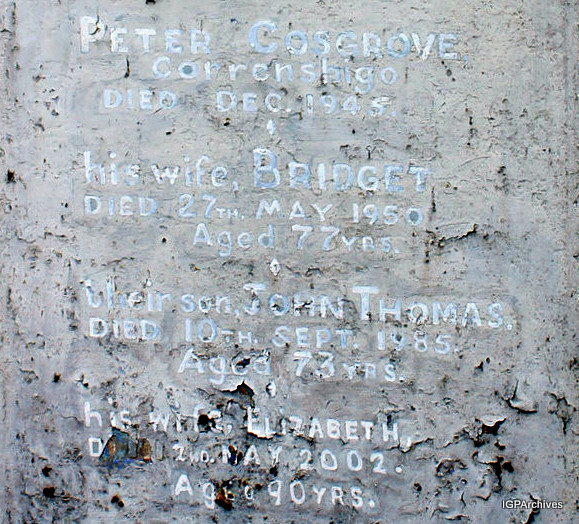 PETER COSGROVE,
Correnshigo
DIED DEC. 1945.
his wife, BRIDGET
DIED 27TH. MAY 1950
Aged 77YRS.
their son, JOHN THOMAS.
DIED 10TH. SEPT. 1985.
Aged 73YRS.
his wife, ELIZABETH,
2ND. MAY 2002.
Aged 90YRS.
IGPArchives